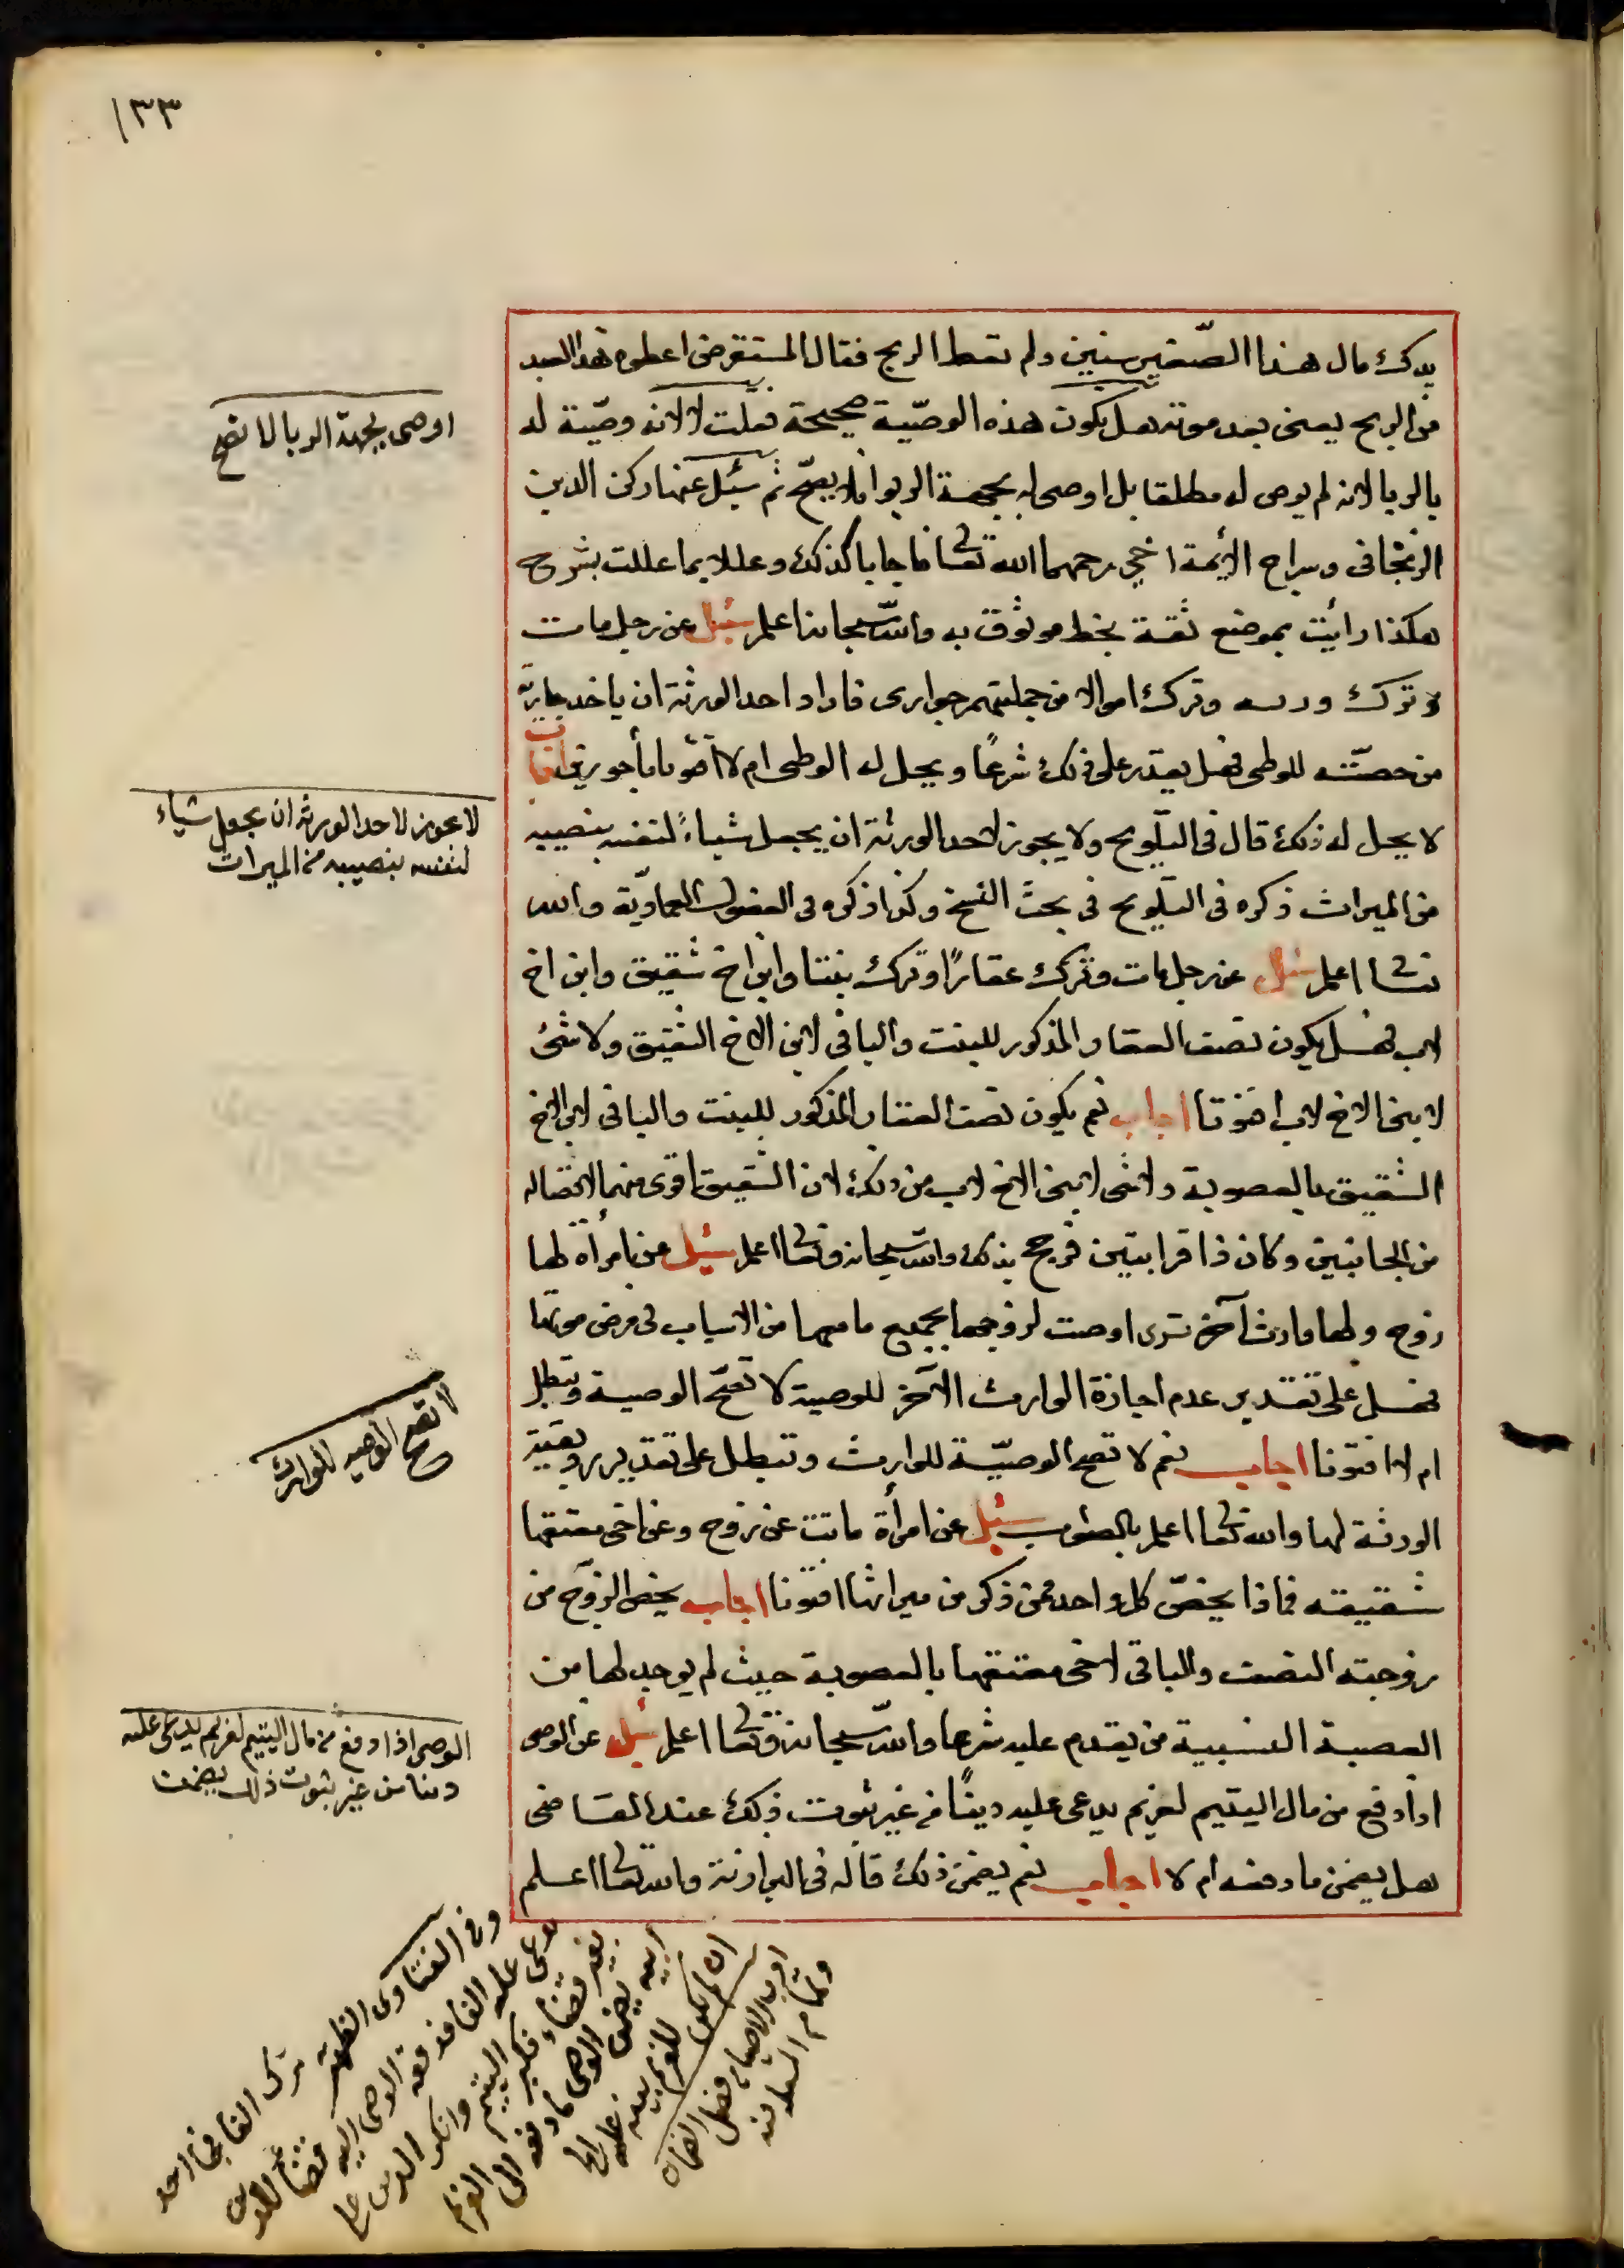 ١٣٣
يدك مال هذا الصّغير سنين ولم تعط الربح فقال المستقرض اعطوه هذا العبد
من الربح يعنى بعد موته هل يكون هذه الوصيّة صحيحة فقلت لا لانه وصيّة له
بالربا لانه لم يوص له مطلقا بل اوصى له بجهة الربوا فلا يصحّ ثم سئل عنها ركن الدين
الزنجانى وسراج الأيمة اخى رحمهما الله تعالى فاجابا كذلك وعللا بما عللت بشرح
هكذا رأيت بموضع ثقة بخط موثوق به والله سبحانه اعلم سئل عن رجل مات
وترك ورثه وترك اموالا من جملتهم جوارى فاراد احد الورثة ان ياخد جارية
من حصّته للوطى فهل يقدر على ذلك شرعًا ويحل له الوطى ام لا افتونا مأجورين اجاب
لا يحل له ذلك قال فى التلويح ولا يجوز لاحد الورثة ان يجعل شياءً لنفسه بنصيبه
من الميراث ذكره فى التلويح فى بحث النسخ وكذا ذكره فى الفصول العماديّة والله
تعالى اعلم سئل عن رجل مات وترك عقارًا وترك بنتا وابن اخ شقيق وابن اخ
لاب فهل يكون نصف العقار المذكور للبنت والباقى لابن الاخ الشقيق ولا شئ
لابن الاخ لاب افتونا اجاب نعم يكون نصف العقار المذكور للبنت والباقى لابن الاخ
الشقيق بالعصوبة ولا شى لابن الاخ لاب من ذلك لان الشقيق اقوى منهما لاتصاله
من الجانبين وكان ذا قرابتين فرجح بذلك والله سبحانه وتعالى اعلم سئل عن امرأة لها
زوج ولها وارث آخر اوصت لزوجها بجميع مالها من الاسباب فى مرض موتها
فهل على تقدير عدم اجازة الوارث الآخر للوصية لا تصحّ الوصية وتبطل
ام لا افتونا اجاب نعم لا تصح الوصيّة للوارث وتبطل على تقدير رد بقيّة
الورثة لها والله تعالى اعلم بالصواب سئل عن امرأة ماتت عن زوج وعن اخى معتقها
شقيقه فماذا يخصّ كل واحد ممن ذكر من ميراثها افتونا اجاب يخص الزوج من
زوجته النصف والباقى لاخى معتقها بالعصوبة حيث لم يوجد لها من
العصبة النسبية من يقدم عليه شرعا والله سبحانه وتعالى اعلم سئل عن الوصى
اذا دفع من مال اليتيم لغريم يدعى عليه دينًا من غير ثبوت ذلك عند القاضى
هل يضمن ما دفعه ام لا اجاب نعم يضمن ذلك قاله فى البزازية والله تعالى اعلم
اوصى بجهة الربا لا تصح
لا يجوز لاحد الورثة ان يجعل شياء
لنفسه بنصيبه من الميراث
لا تصح الوصيه للوارث
الوصى اذا دفع من مال اليتيم لغريم يدعى عليه
دينا من غير ثبوت ذلك يضمن
وفى الفتاوى الظهيرية ترك الفا فجاء احد
يدعى عليه الفا فدفعه الوصى اليه قضاء للدين
بغير قضاء فكبر اليتيم وانكر الدين على
ابيه يضمن الوصى ما دفعه الى الغريم
ان لم يكن للغريم بينة عليه
ادب الاوصياء فصل الضمان
وتمام